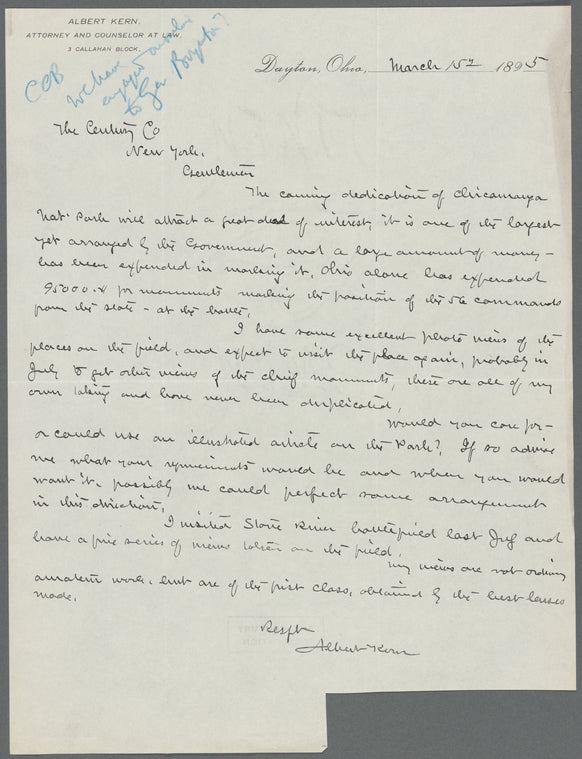 ALBERT KERN.
ATTORNEY AND COUNSELOR AT LAW.
3 CALLAHAN BLOCK.
COB
we have
engaged
to Gen Boynton?
Dayton, Ohio, March 15th 1895
The Century Co
New York.
Gentlemen
The coming dedication of Chicamauga
Nat. Park will attract a great deal of interest, it is one of the largest
yet arranged by the Government, and a large amount of money –
has been expended in marking it, Ohio alone has expended
95000.xx for monuments marking the position of the 56 commands
from the state – at the battle.
I have some excellent photo views of the
places on the field, and expect to visit the place again, probably in
July to get other views of the chief monuments, these are all of my
own taking and have never been duplicated,
Would you care for –
or could use an illustrated article on the Park? If so advise
me what your requirements would be and when you would
want it. possibly we could perfect some arrangement
in this direction.
I visited Stone River battlefield last July and
have a fine series of views taken on the field.
My views are not ordinary
amateur work, but are of the first class, obtained by the best lenses
made.
Respt
Albert Kern